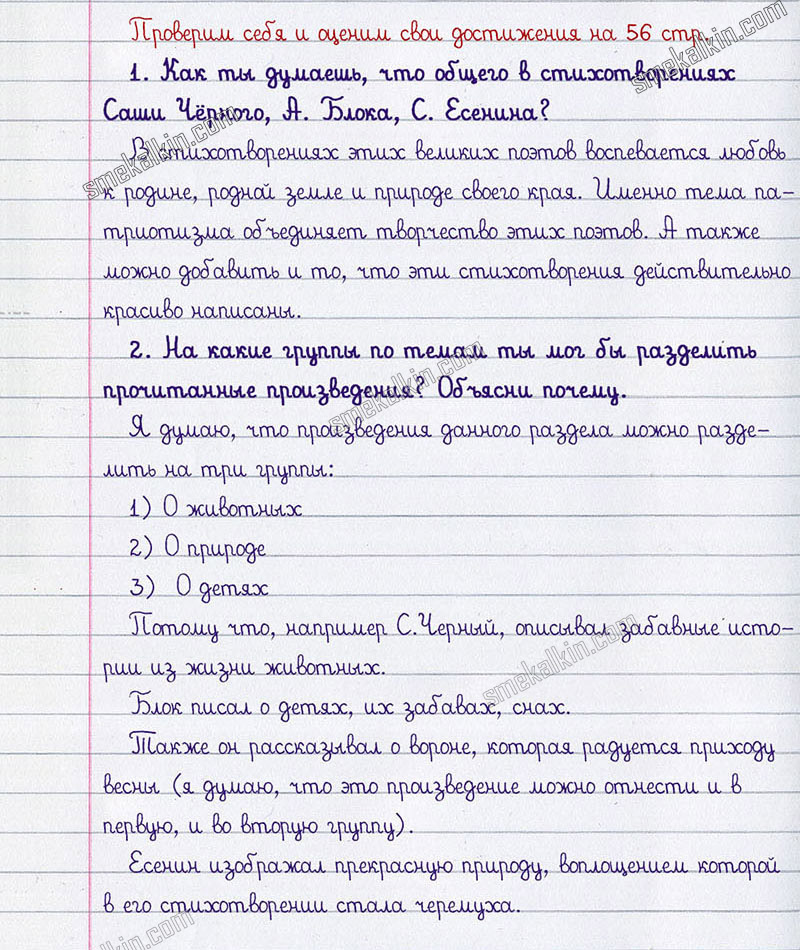 Проверим себя и оценим свои достижения на 56 стр.
1. Как ты думаешь, что общего в стихотворениях
Саши Чёрного, А. Блока, С. Есенина?
В стихотворениях этих великих поэтов воспевается любовь
к родине, родной земле и природе своего края. Именно тема па-
триотизма объединяет творчество этих поэтов. А также
можно добавить и то, что эти стихотворения действительно
красиво написаны.
2. На какие группы по темам ты мог бы разделить
прочитанные произведения? Объясни почему.
Я думаю, что произведения данного раздела можно разде-
лить на три группы:
1) О животных
2) О природе
3) О детях
Потому что, например С.Черный, описывал забавные исто-
рии из жизни животных.
Блок писал о детях, их забавах, снах.
Также он рассказывал о вороне, которая радуется приходу
весны (я думаю, что это произведение можно отнести и в
первую, и во вторую группу).
Есенин изображал прекрасную природу, воплощением которой
в его стихотворении стала черемуха.
smekalkin.com
smekalkin.com
smekalkin.com
smekalkin.com
smekalkin.com